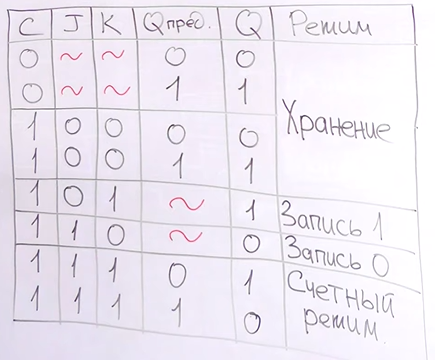 C J K Qпред. Q Режим
0 ~ ~ 0 0
0 ~ ~ 1 1
Хранение
1 0 0 0 0
1 0 0 1 1
1 0 1 ~ 1 Запись 1
1 1 0 ~ 0 Запись 0
1 1 1 0 1 Счетный
1 1 1 1 0 режим